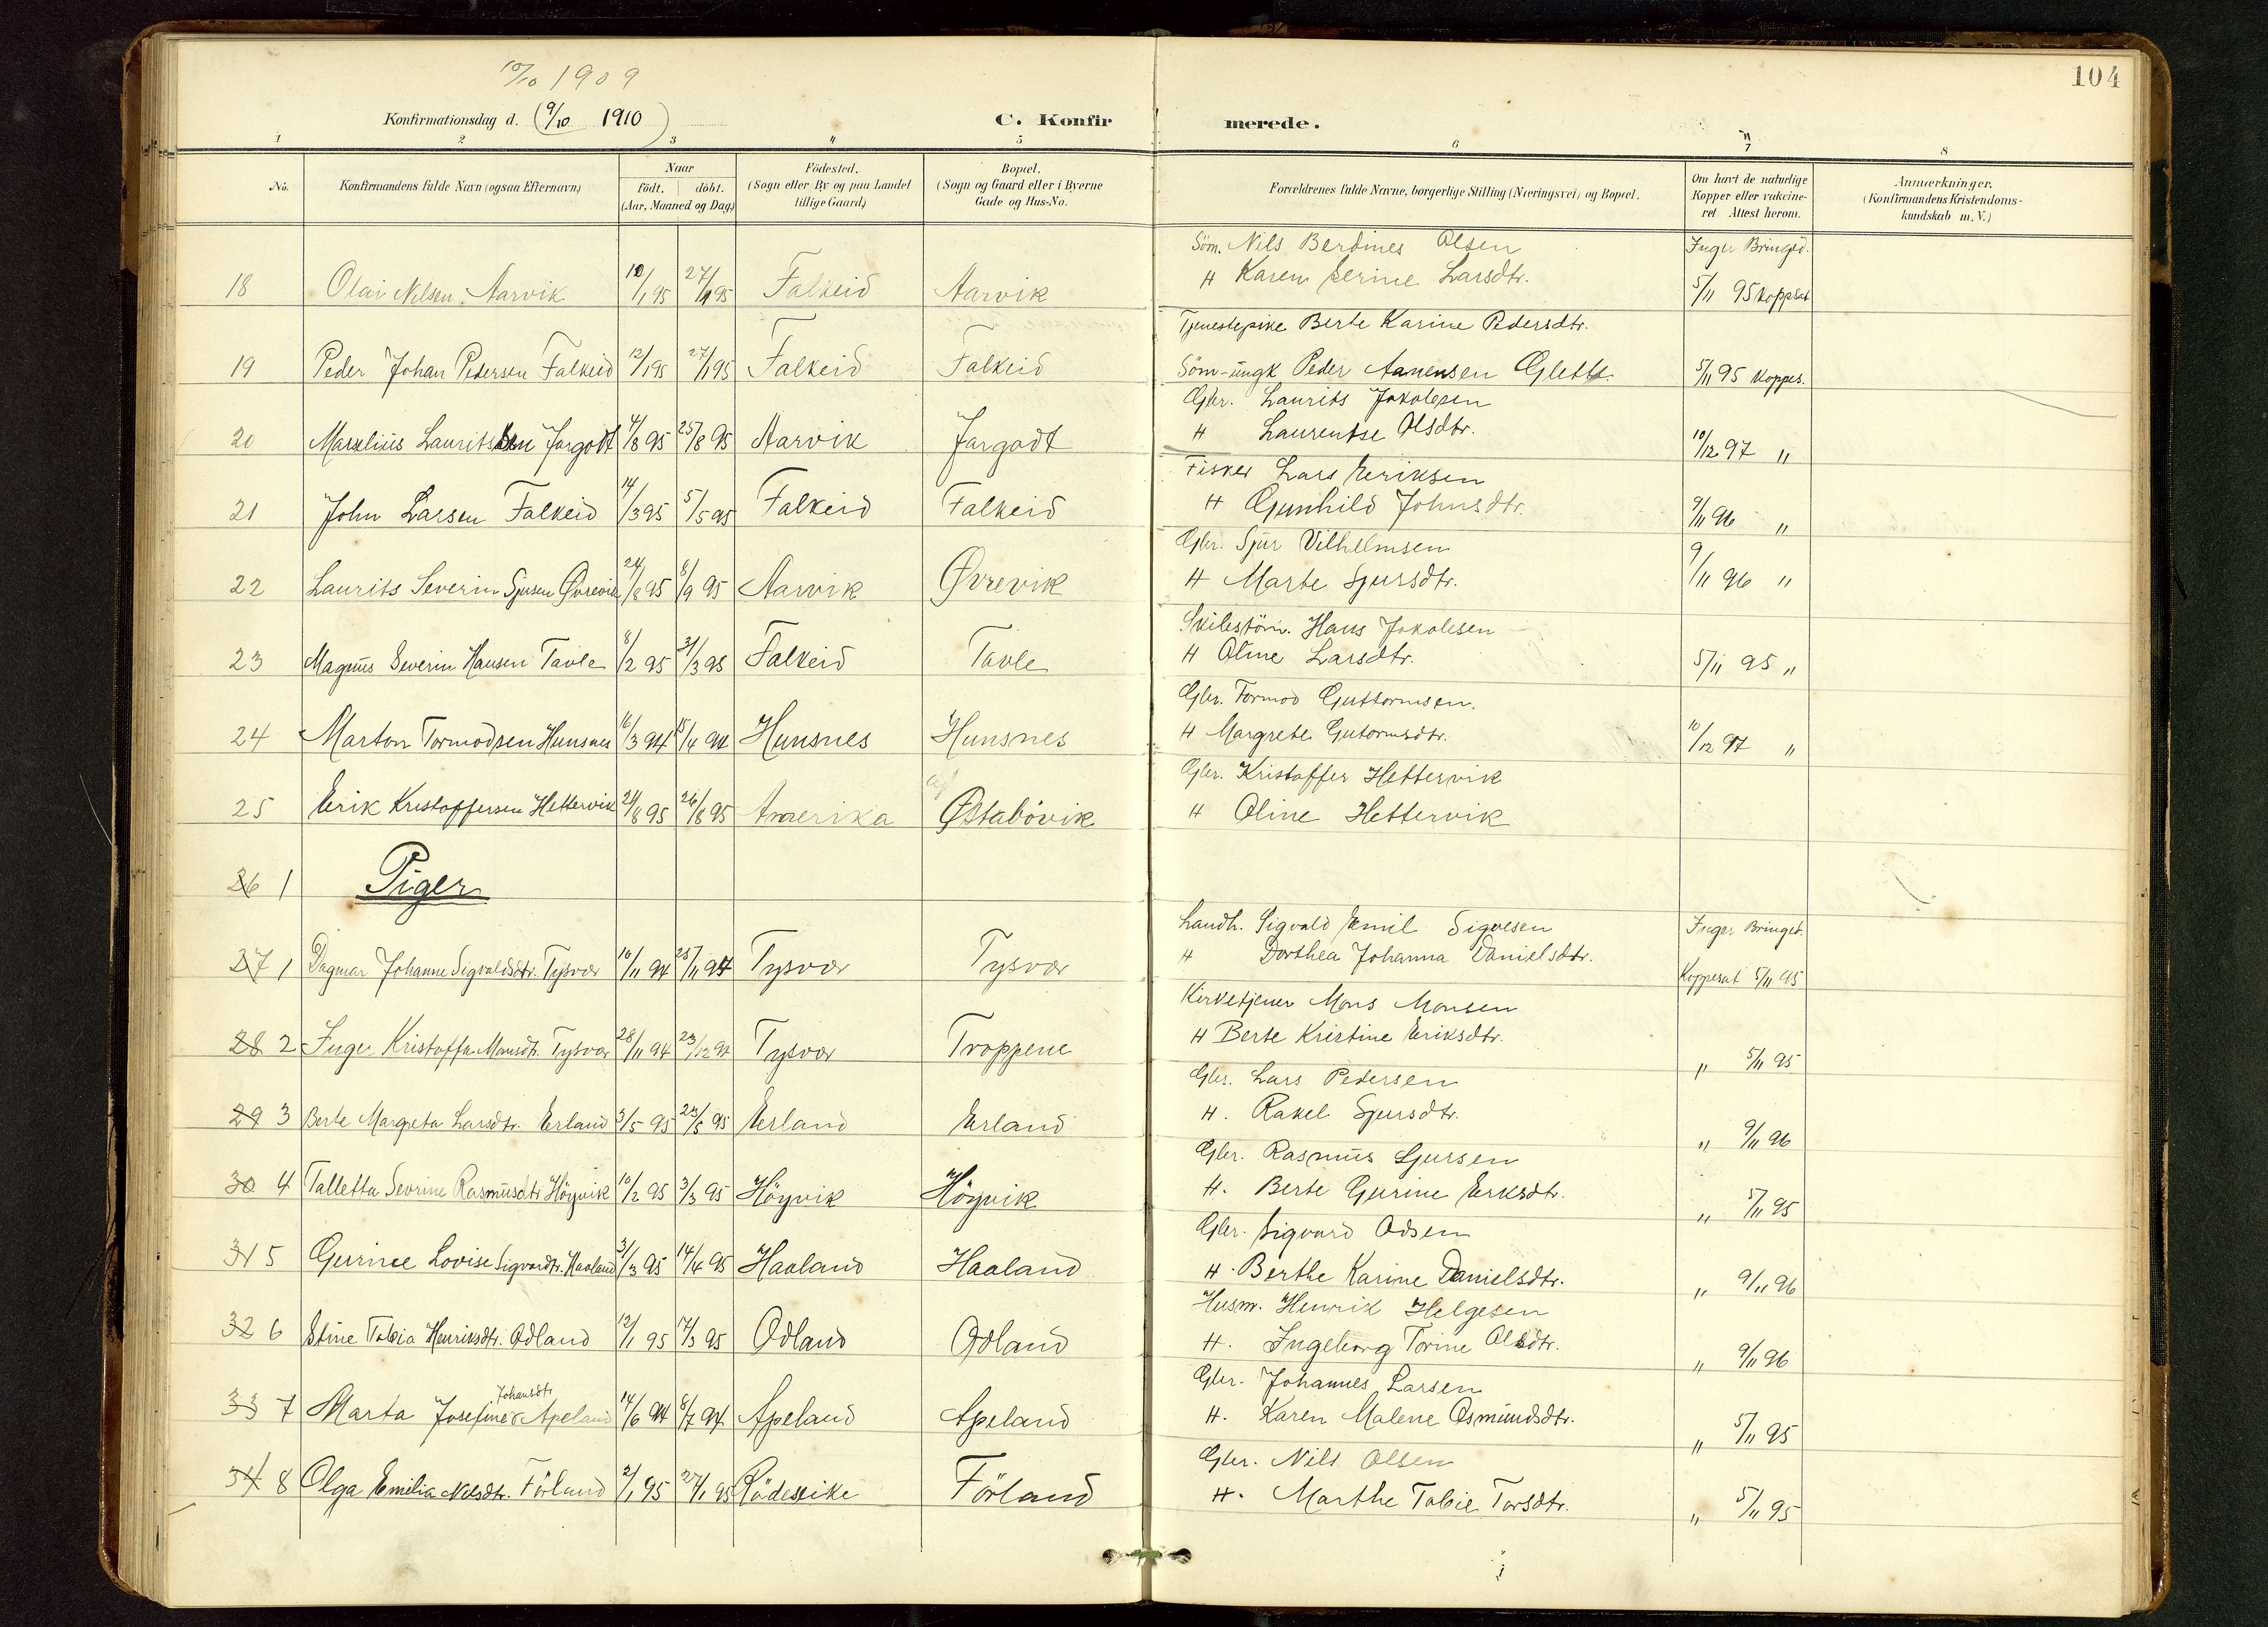 104
10/10 1909
Konfirmationsdag d. (9/10 1910)
C. Konfirmerede.
1 2 3 4 5 6 7 8
No. Konfirmandens fulde Navn (ogsaa Efternavn) Naar födt. döbt. (Aar, Maaned og Dag.) Födested. (Sogn eller By og paa Landet tillige Gaard) Bopæl. (Sogn og Gaard eller i Byerne Gade og Hus-No. Forældrenes fulde Navne, borgerlige Stilling (Næringsvei) og Bopæl. Om havt de naturlige Kopper eller vakcineret. Attest herom. Anmærkninger. (Konfirmandens Kristendomskundskab m. V.)
Söm. Nils Berdines Olsen Inger Bringed.
18 Olai Nilsen Aarvik 10/1 95 27/1 95 Falkeid Aarvik H Karen Serine Larsdtr. 5/11 95 koppsat
Tjenestepike Berte Karine Pedersdtr.
19 Peder Johan Pedersen Falkeid 12/1 95 27/1 95 Falkeid Falkeid Söm-ungk Peder Aanensen Glette 5/11 95 koppes.
Gbr. Laurits Jakolesen
20 Marelius Lauritssen Jørgodt 4/8 95 25/8 95 Aarvik Jargodt H Laurentse Olsdtr. 10/12 97 "
Fisker Lars Eeriksen
21 John Larsen Falkeid 14/3 95 5/5 95 Falkeid Falkeid H Gunhild Johnsdtr. 9/11 96 "
Gbr. Sjur Vilhelmsen
22 Laurits Severin Sjursen Øvrevik 24/8 95 8/9 95 Aarvik Øvrevik H Marte Sjursdtr. 9/11 96 "
Hans Jakolesen
23 Magnus Severin Hansen Tavle 8/2 95 31/3 95 Falkeid Tavle H Oline Larsdtr. 5/11 95 "
Gbr. Tormod Guttormsen.
24 Marton Tormodsen Hunsnes 16/3 94 15/4 94 Hunsnes Hunsnes H Margrete Gutormsdtr. 10/12 97 "
Gbr. Kristoffer Hettervik
25 Erik Kristoffersen Hettervik 21/8 95 26/8 95 Amerika Østabövik H Oline Hettervik
26 1 Piger
Landh. Sigvald Emil Sigvesen Inger Bringed.
27 1 Dagmar Johanne Sigvaldsdtr. Tysvær 10/11 94 25/11 94 Tysvær Tysvær H Dorthea Johanna Danielsdtr. Koppesat 5/11 95
Kirketjener Mons Monsen
28 2 Inger Kristoffa Monsdtr. Tysvær 28/11 94 23/12 94 Tysvær Troppene H Berte Kristine Eriksdtr. " 5/11 95
Gbr. Lars Pedersen
29 3 Berte Margreta Larsdtr. Erland 3/5 95 23/5 95 Erland Erland H. Rakel Sjursdtr. " 9/11 96
Gbr. Rasmus Sjursen
30 4 Talletta Sevrine Rasmusdtr Höyvik 10/2 95 3/3 95 Höyvik Höyvik H. Berte Gurine Erksdtr. " 5/11 95
Gbr. Sigvard Odsen
31 5 Gurine Lovise Sigvardtr. Haaland 31/3 95 14/4 95 Haaland Haaland H. Berthe Karine Danielsdtr. " 9/11 96
Husm. Henrik Helgesen
32 6 Stine Tobia Henriksdtr. Odland 12/1 95 17/3 95 Odland Odland H. Ingeborg Torine Olsdtr. " 9/11 96
Gbr. Johannes Larsen
33 7 Marta Josefine Johansdtr Apeland 14/6 94 8/7 94 Apeland Apeland H. Karen Malene Osmundsdtr. " 5/11 95
Gbr. Nils Olsen
34 8 Olga Emilia Nilsdtr. Förland 2/1 95 27/1 95 Rödespike Förland H. Marthe Tobie Torsdtr. " 5/11 95